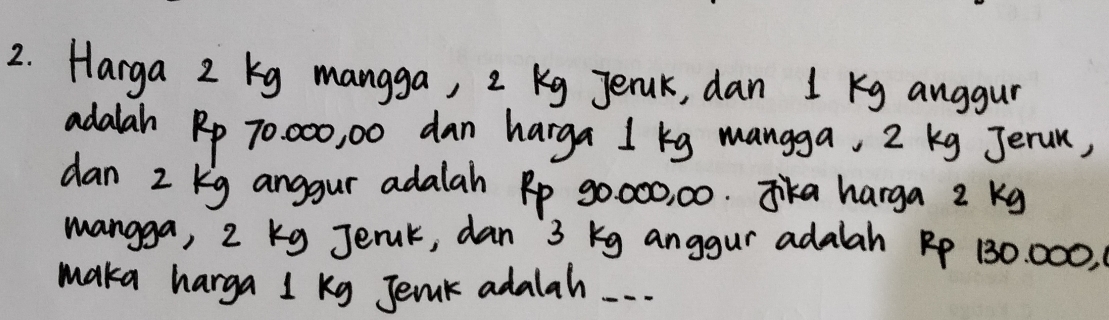 2. Harga 2 kg mangga, 2 kg Jeruk, dan 1 kg anggur
adalah Rp 70.000,00 dan harga 1 kg mangga, 2 kg Jeruk,
dan 2 kg anggur adalah Rp 90.000,00. Jika harga 2 kg
mangga, 2 kg Jeruk, dan 3 kg anggur adalah Rp 130.000,
maka harga 1 kg Jeruk adalah ---